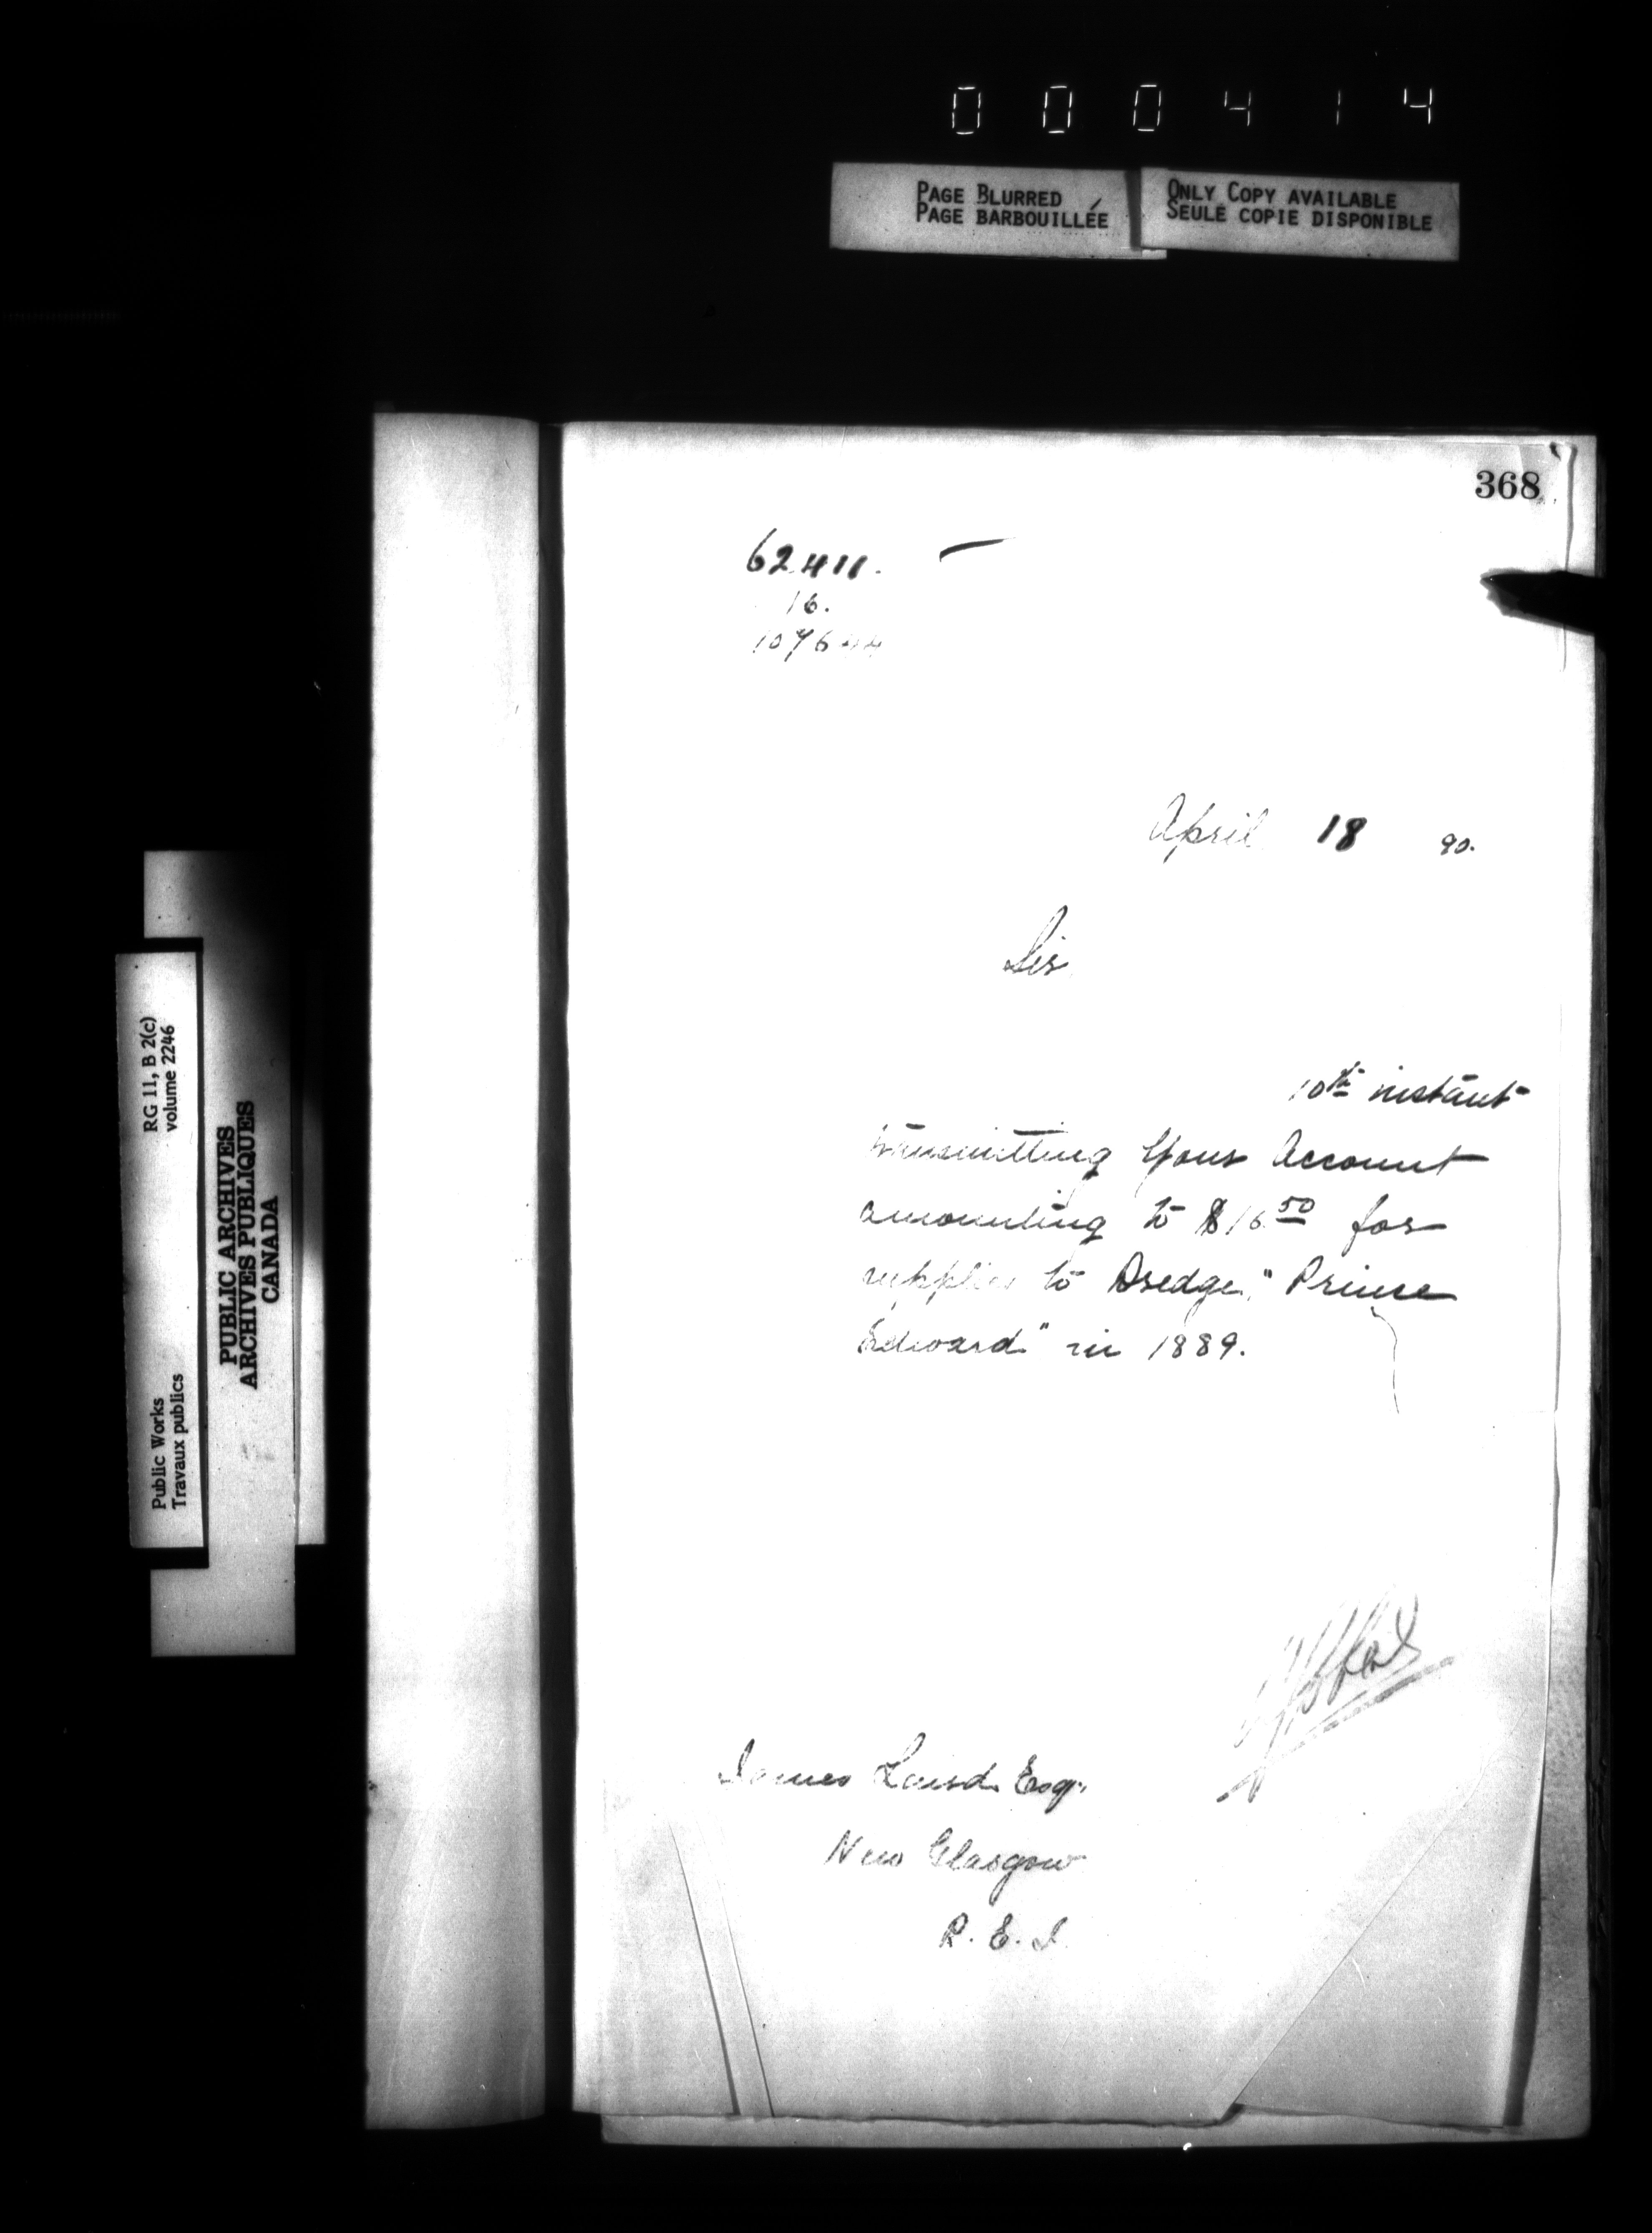 000414
PAGE BLURRED
PAGE BARBOUILLÉE
ONLY COPY AVAILABLE
SEULE COPIE DISPONIBLE
368
62411.
16.
107644
April 18 90.
Sir
10th instant
transmitting your Account
amounting to $16.50 for
supplies to Dredge "Prince
Edward" in 1889.
James Laird Esq.
New Glasgow
P. E. I.
RG 11, B 2(c)
volume 2246
Public Works
Travaux publics
PUBLIC ARCHIVES
ARCHIVES PUBLIQUES
CANADA